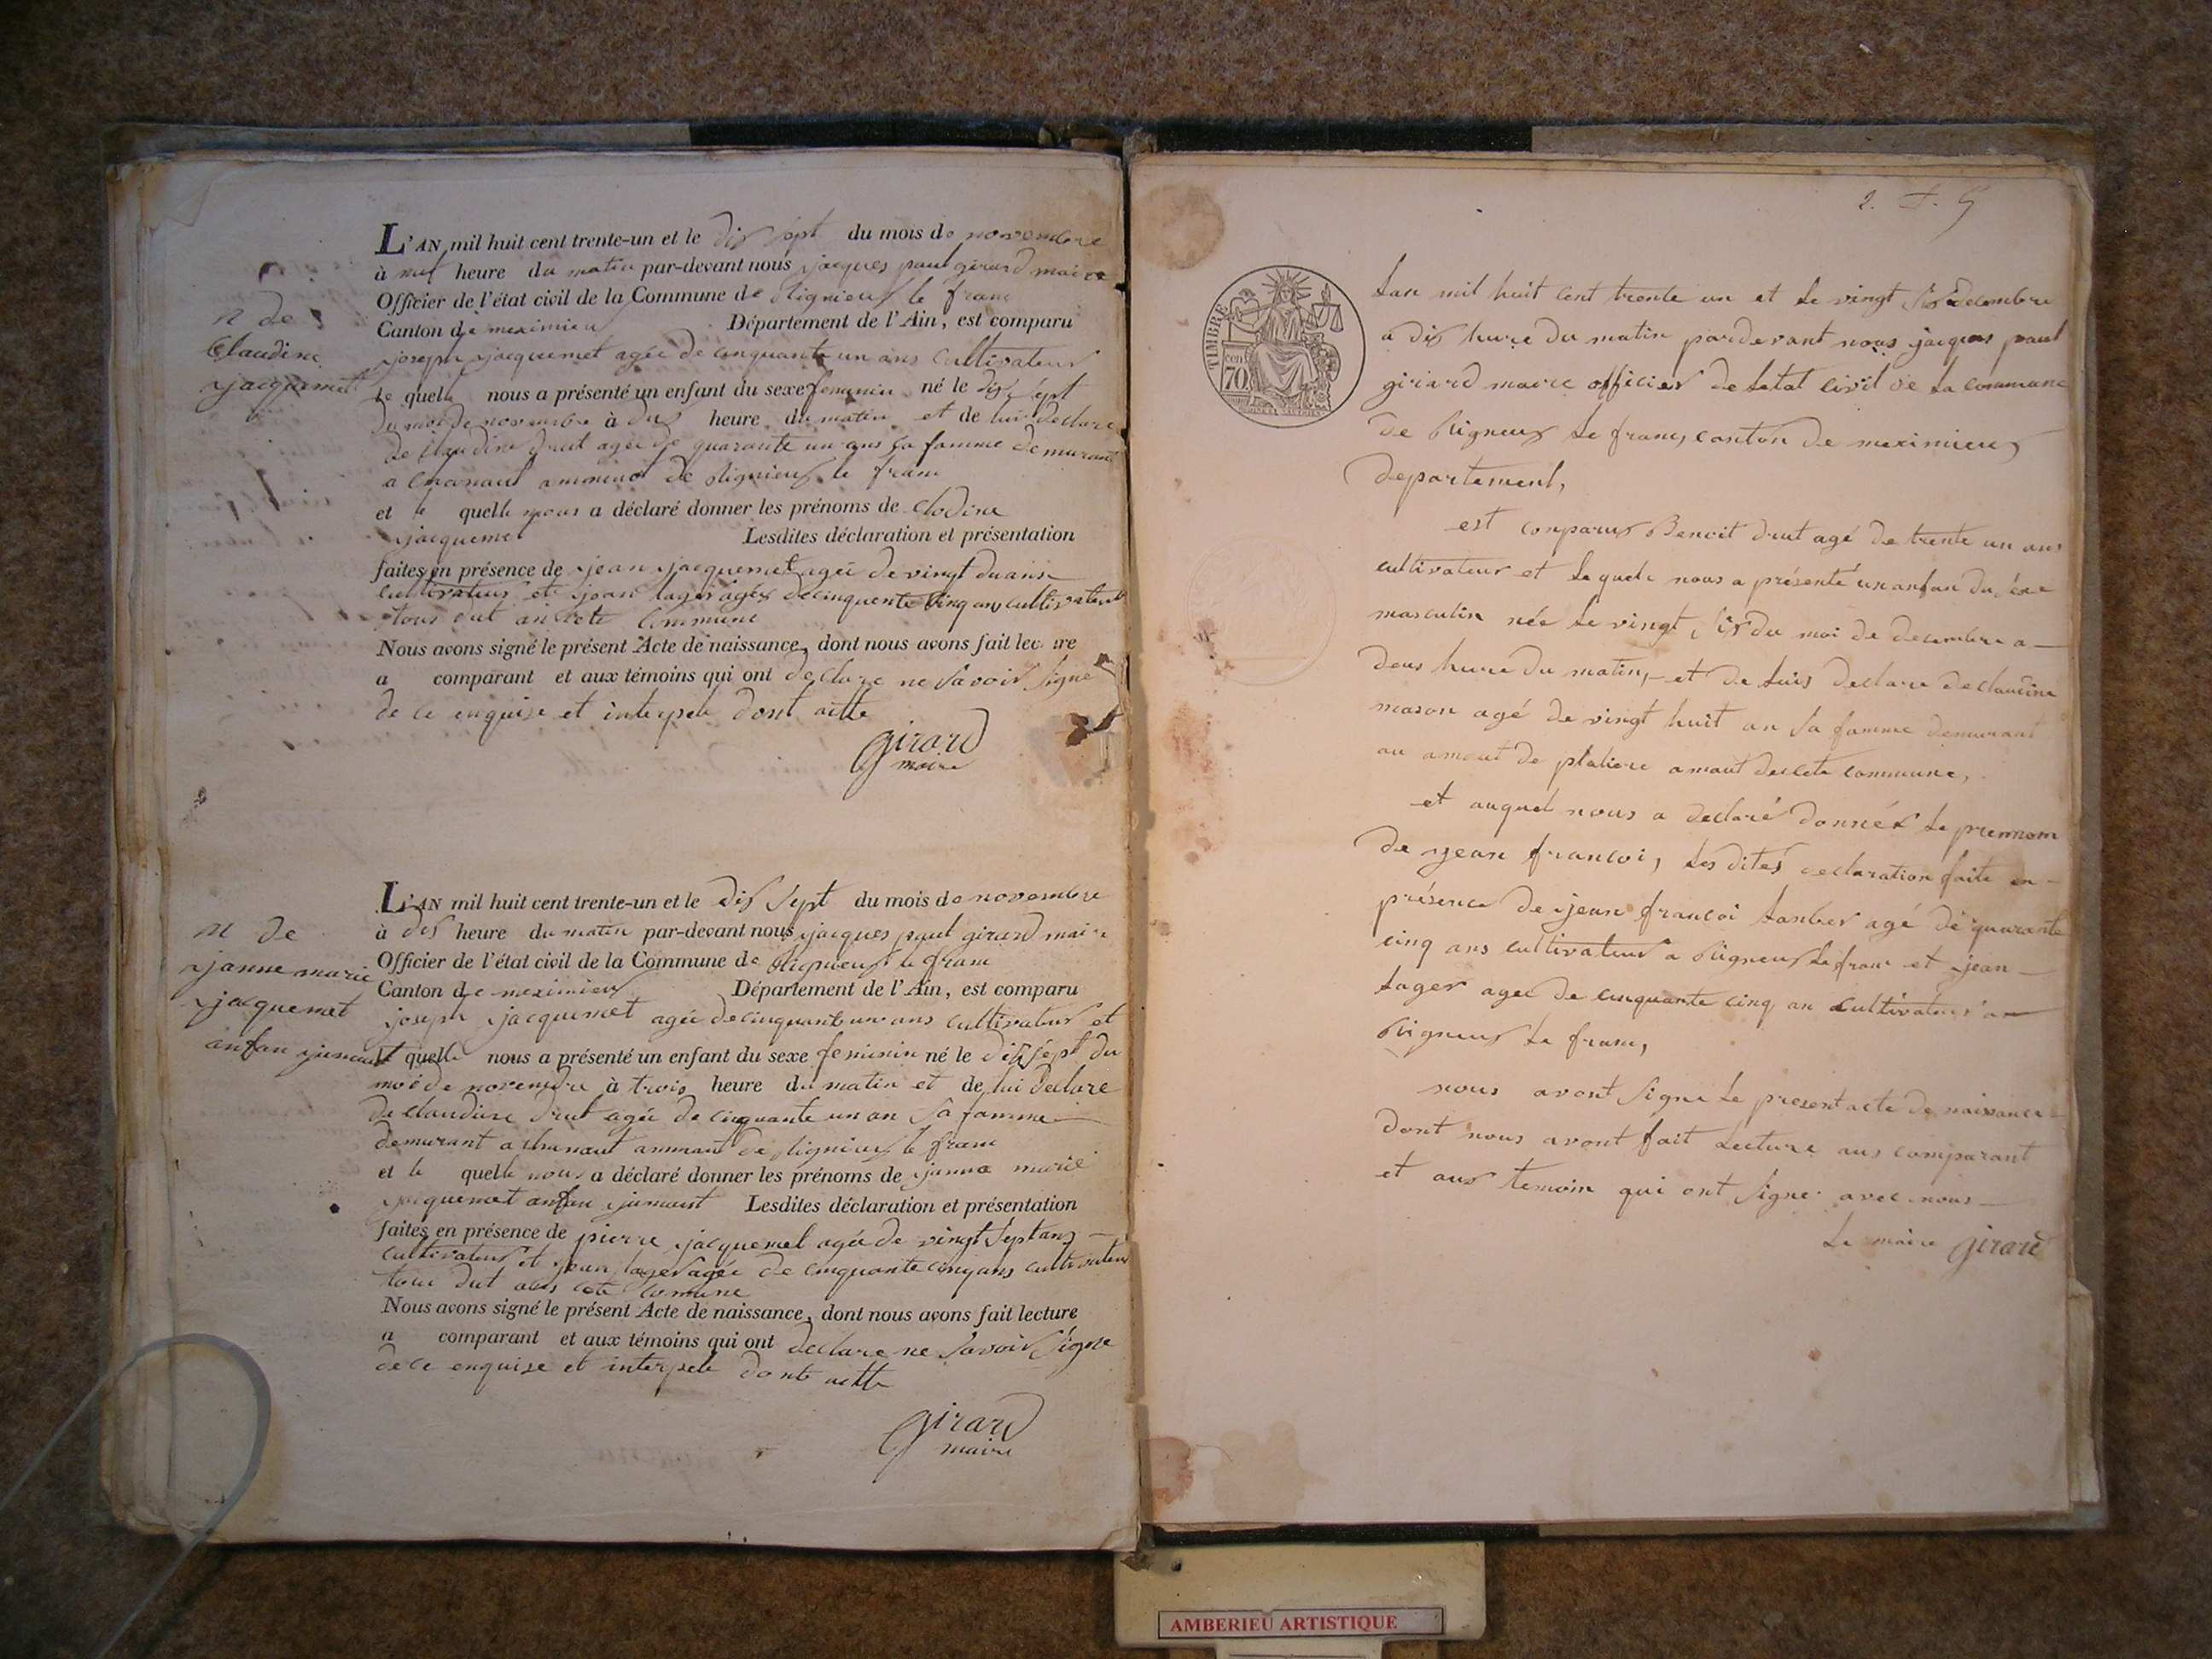 L'AN mil huit cent trente-un et le dix sept du mois de novembre
à neuf heure du matin par-devant nous jacques paul girard maire
Officier de l'état civil de la Commune de Rignieux le franc
n de
Canton de meximieux Département de l'Ain, est comparu
Claudine
joseph jacquemet agée de cinquante un ans cultivateur
jacquemet
le quelle nous a présenté un enfant du sexe femenin né le dix sept
du moi de novembre à deux heure du matin et de lui declare
de Claudine drut agée de quarante un ans sa famme demurant
a de Rignieux le franc
et le quelle nous a déclaré donner les prénoms de Clodine
jacquemet Lesdites déclaration et présentation
faites en présence de jean jacquemet agée de vingt du ans
cultivateur et jean lager agés de cinquente cinq ans cultivateur
tous commune
Nous avons signé le présent Acte de naissance, dont nous avons fait lecture
a comparant et aux témoins qui ont declare ne savoir signé
de ce enquise et interpele dont actte
girard
maire
L'AN mil huit cent trente-un et le dix sept du mois de novembre
n de
à dix heure du matin par-devant nous jacques paul girard maire
Officier de l'état civil de la Commune de Rignieux le franc
janne marie
Canton de meximieux Département de l'Ain, est comparu
jacquemet
joseph jacquemet agée de cinquante un ans cultivateur et
anfan jumaut
le quelle nous a présenté un enfant du sexe feminin né le dix sept du
moi de novembre à trois heure du matin et de lui declare
de claudine drut agée de cinquante un an sa famme
demurant a de Rignieux le franc
et le quelle nous a déclaré donner les prénoms de janne marie
jacquemet anfan jumaut Lesdites déclaration et présentation
faites en présence de pierre jacquemet agée de vingt sept ans
cultivateur et jean lager agée de cinquante cinq ans cultivateur
comune
Nous avons signé le présent Acte de naissance, dont nous avons fait lecture
a comparant et aux témoins qui ont declare ne savoir signe
de ce enquise et interpele dont actte
girard
maire
TIMBRE
cen
70
Lan mil huit cent trente un et le vingt six decembre
a dix hure du matin pardevant nous jacques paul
girard maire officier de letat civil de la commune
de Rigneux le franc, canton de meximieux
departement,
est conparus Benoit drut agé de trente un ans
cultivateur et le quele nous a présenté un anfan du séxe
masculin née le vingt six du moi de decembre a
deus hure du matin, et de luis declare de claudine
mason agé de vingt huit an sa famme demurant
au amaut de platiere amaut de cete commune,
et auquel nous a declaré donnér le prennom
de jean francoi, les dités declaration faite en
présence de jean francoi agé de quarante
cinq ans cultivateur a Rigneux le franc et jean
lager agee de cinquante cinq an cultivateur a
Rigneux le franc,
nous avont signe le present acte de naissance
dont nous avont fait lecture aus comparant
et aux temoin qui ont signe avec nous
Le maire girard
AMBERIEU ARTISTIQUE